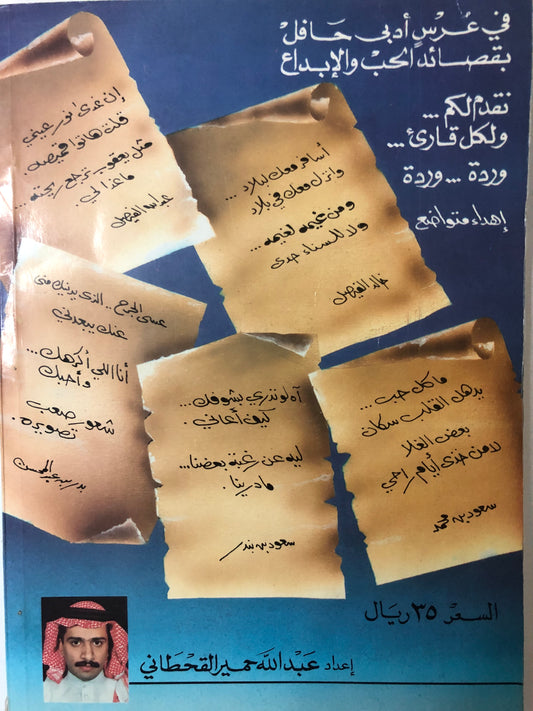 في عُرْسٍ أدبى حَافل
بقصائد الحب والإبداع
نقدم لكم ...
ولكل قارئ ...
وردة ... وردة
إهداء متواضع
إن غدى انور عيني
قلت هاتوا قميصه
مثل يعقوب ترجع ريحته ...
ما غدا لي
عبدالله الفيصل
أسافر معك لبلاد ...
وانزل معك في بلاد
ومن غيمه لغيمه ...
ولا للسناء حدى
خالد الفيصل
عسى الجرح .. الذي يدنيك مني
عنك يبعدني
أنا اللي أكرهك ...
وأحبك
شعور صعب
تصويره .
بدر بن عبدالمحسن
آه لو تدري بشوفك ...
كيف أعاني .
ليه عن رغبة بعضنا ...
ما درينا .
سعود بن بندر
ما كل حب ...
يدهل القلب سكان
بعض الغلا
لا من خذى أيام راحي
سعود بن محمد
السعر ٣٥ ريال
إعداد عَبْدالله حمير القحطاني